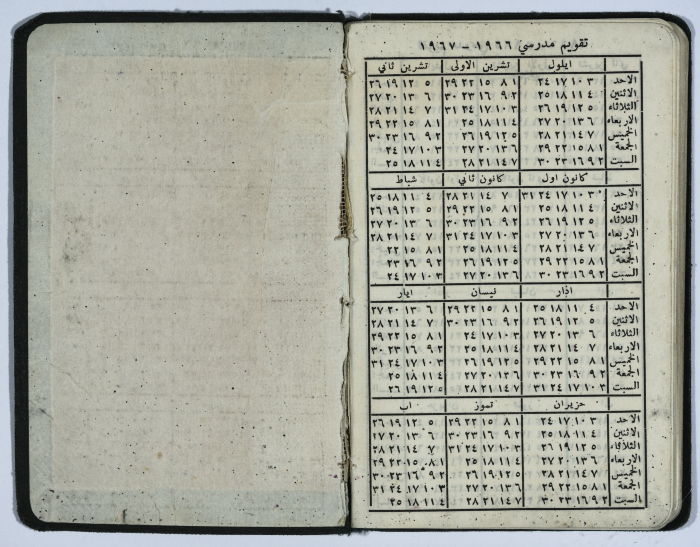 تقويم مدرسي ١٩٦٦ - ١٩٦٧
ايلول تشرين الاولى تشرين ثاني
الاحد ٣ ١٠ ١٧ ٢٤ ١ ٨ ١٥ ٢٢ ٢٩ ٥ ١٢ ١٩ ٢٦
الاثنين ٤ ١١ ١٨ ٢٥ ٢ ٩ ١٦ ٢٣ ٣٠ ٦ ١٣ ٢٠ ٢٧
الثلاثاء ٥ ١٢ ١٩ ٢٦ ٣ ١٠ ١٧ ٢٤ ٣١ ٧ ١٤ ٢١ ٢٨
الاربعاء ٦ ١٣ ٢٠ ٢٧ ٤ ١١ ١٨ ٢٥ ١ ٨ ١٥ ٢٢ ٢٩
الخميس ٧ ١٤ ٢١ ٢٨ ٥ ١٢ ١٩ ٢٦ ٢ ٩ ١٦ ٢٣ ٣٠
الجمعة ١ ٨ ١٥ ٢٢ ٢٩ ٦ ١٣ ٢٠ ٢٧ ٣ ١٠ ١٧ ٢٤
السبت ٢ ٩ ١٦ ٢٣ ٣٠ ٧ ١٤ ٢١ ٢٨ ٤ ١١ ١٨ ٢٥
كانون اول كانون ثاني شباط
الاحد ٣ ١٠ ١٧ ٢٤ ٣١ ٧ ١٤ ٢١ ٢٨ ٤ ١١ ١٨ ٢٥
الاثنين ٤ ١١ ١٨ ٢٥ ١ ٨ ١٥ ٢٢ ٢٩ ٥ ١٢ ١٩ ٢٦
الثلاثاء ٥ ١٢ ١٩ ٢٦ ٢ ٩ ١٦ ٢٣ ٣٠ ٦ ١٣ ٢٠ ٢٧
الاربعاء ٦ ١٣ ٢٠ ٢٧ ٣ ١٠ ١٧ ٢٤ ٣١ ٧ ١٤ ٢١ ٢٨
الخميس ٧ ١٤ ٢١ ٢٨ ٤ ١١ ١٨ ٢٥ ١ ٨ ١٥ ٢٢
الجمعة ١ ٨ ١٥ ٢٢ ٢٩ ٥ ١٢ ١٩ ٢٦ ٢ ٩ ١٦ ٢٣
السبت ٢ ٩ ١٦ ٢٣ ٣٠ ٦ ١٣ ٢٠ ٢٧ ٣ ١٠ ١٧ ٢٤
اذار نيسان ايار
الاحد ٤ ١١ ١٨ ٢٥ ١ ٨ ١٥ ٢٢ ٢٩ ٦ ١٣ ٢٠ ٢٧
الاثنين ٥ ١٢ ١٩ ٢٦ ٢ ٩ ١٦ ٢٣ ٣٠ ٧ ١٤ ٢١ ٢٨
الثلاثاء ٦ ١٣ ٢٠ ٢٧ ٣ ١٠ ١٧ ٢٤ ١ ٨ ١٥ ٢٢ ٢٩
الاربعاء ٧ ١٤ ٢١ ٢٨ ٤ ١١ ١٨ ٢٥ ٢ ٩ ١٦ ٢٣ ٣٠
الخميس ١ ٨ ١٥ ٢٢ ٢٩ ٥ ١٢ ١٩ ٢٦ ٣ ١٠ ١٧ ٢٤ ٣١
الجمعة ٢ ٩ ١٦ ٢٣ ٣٠ ٦ ١٣ ٢٠ ٢٧ ٤ ١١ ١٨ ٢٥
السبت ٣ ١٠ ١٧ ٢٤ ٣١ ٧ ١٤ ٢١ ٢٨ ٥ ١٢ ١٩ ٢٦
حزيران تموز اب
الاحد ٣ ١٠ ١٧ ٢٤ ١ ٨ ١٥ ٢٢ ٢٩ ٥ ١٢ ١٩ ٢٦
الاثنين ٤ ١١ ١٨ ٢٥ ٢ ٩ ١٦ ٢٣ ٣٠ ٦ ١٣ ٢٠ ٢٧
الثلاثاء ٥ ١٢ ١٩ ٢٦ ٣ ١٠ ١٧ ٢٤ ٣١ ٧ ١٤ ٢١ ٢٨
الاربعاء ٦ ١٣ ٢٠ ٢٧ ٤ ١١ ١٨ ٢٥ ١ ٨ ١٥ ٢٢ ٢٩
الخميس ٧ ١٤ ٢١ ٢٨ ٥ ١٢ ١٩ ٢٦ ٢ ٩ ١٦ ٢٣ ٣٠
الجمعة ١ ٨ ١٥ ٢٢ ٢٩ ٦ ١٣ ٢٠ ٢٧ ٣ ١٠ ١٧ ٢٤ ٣١
السبت ٢ ٩ ١٦ ٢٣ ٣٠ ٧ ١٤ ٢١ ٢٨ ٤ ١١ ١٨ ٢٥